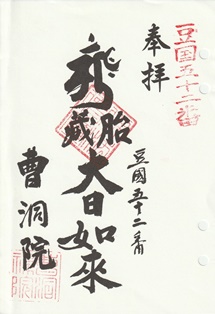 豆国五十二番
奉拝
豆國五十二番
胎蔵大日如來
曹洞院